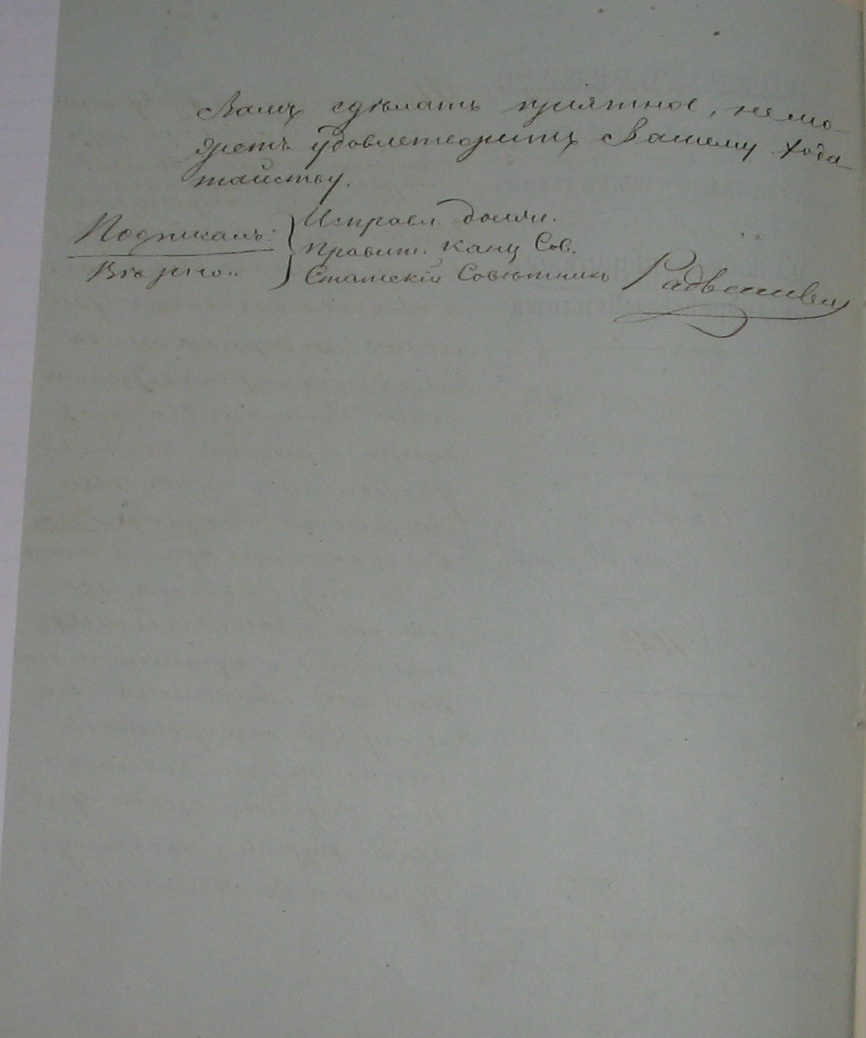 Вамъ сдѣлать пріятное, не мо-
жетъ удовлетворить Вашему хода-
тайству.
Подписалъ: Исправл. должн.
правит. канц. Сов.
Вѣрно: Статскій Совѣтникъ